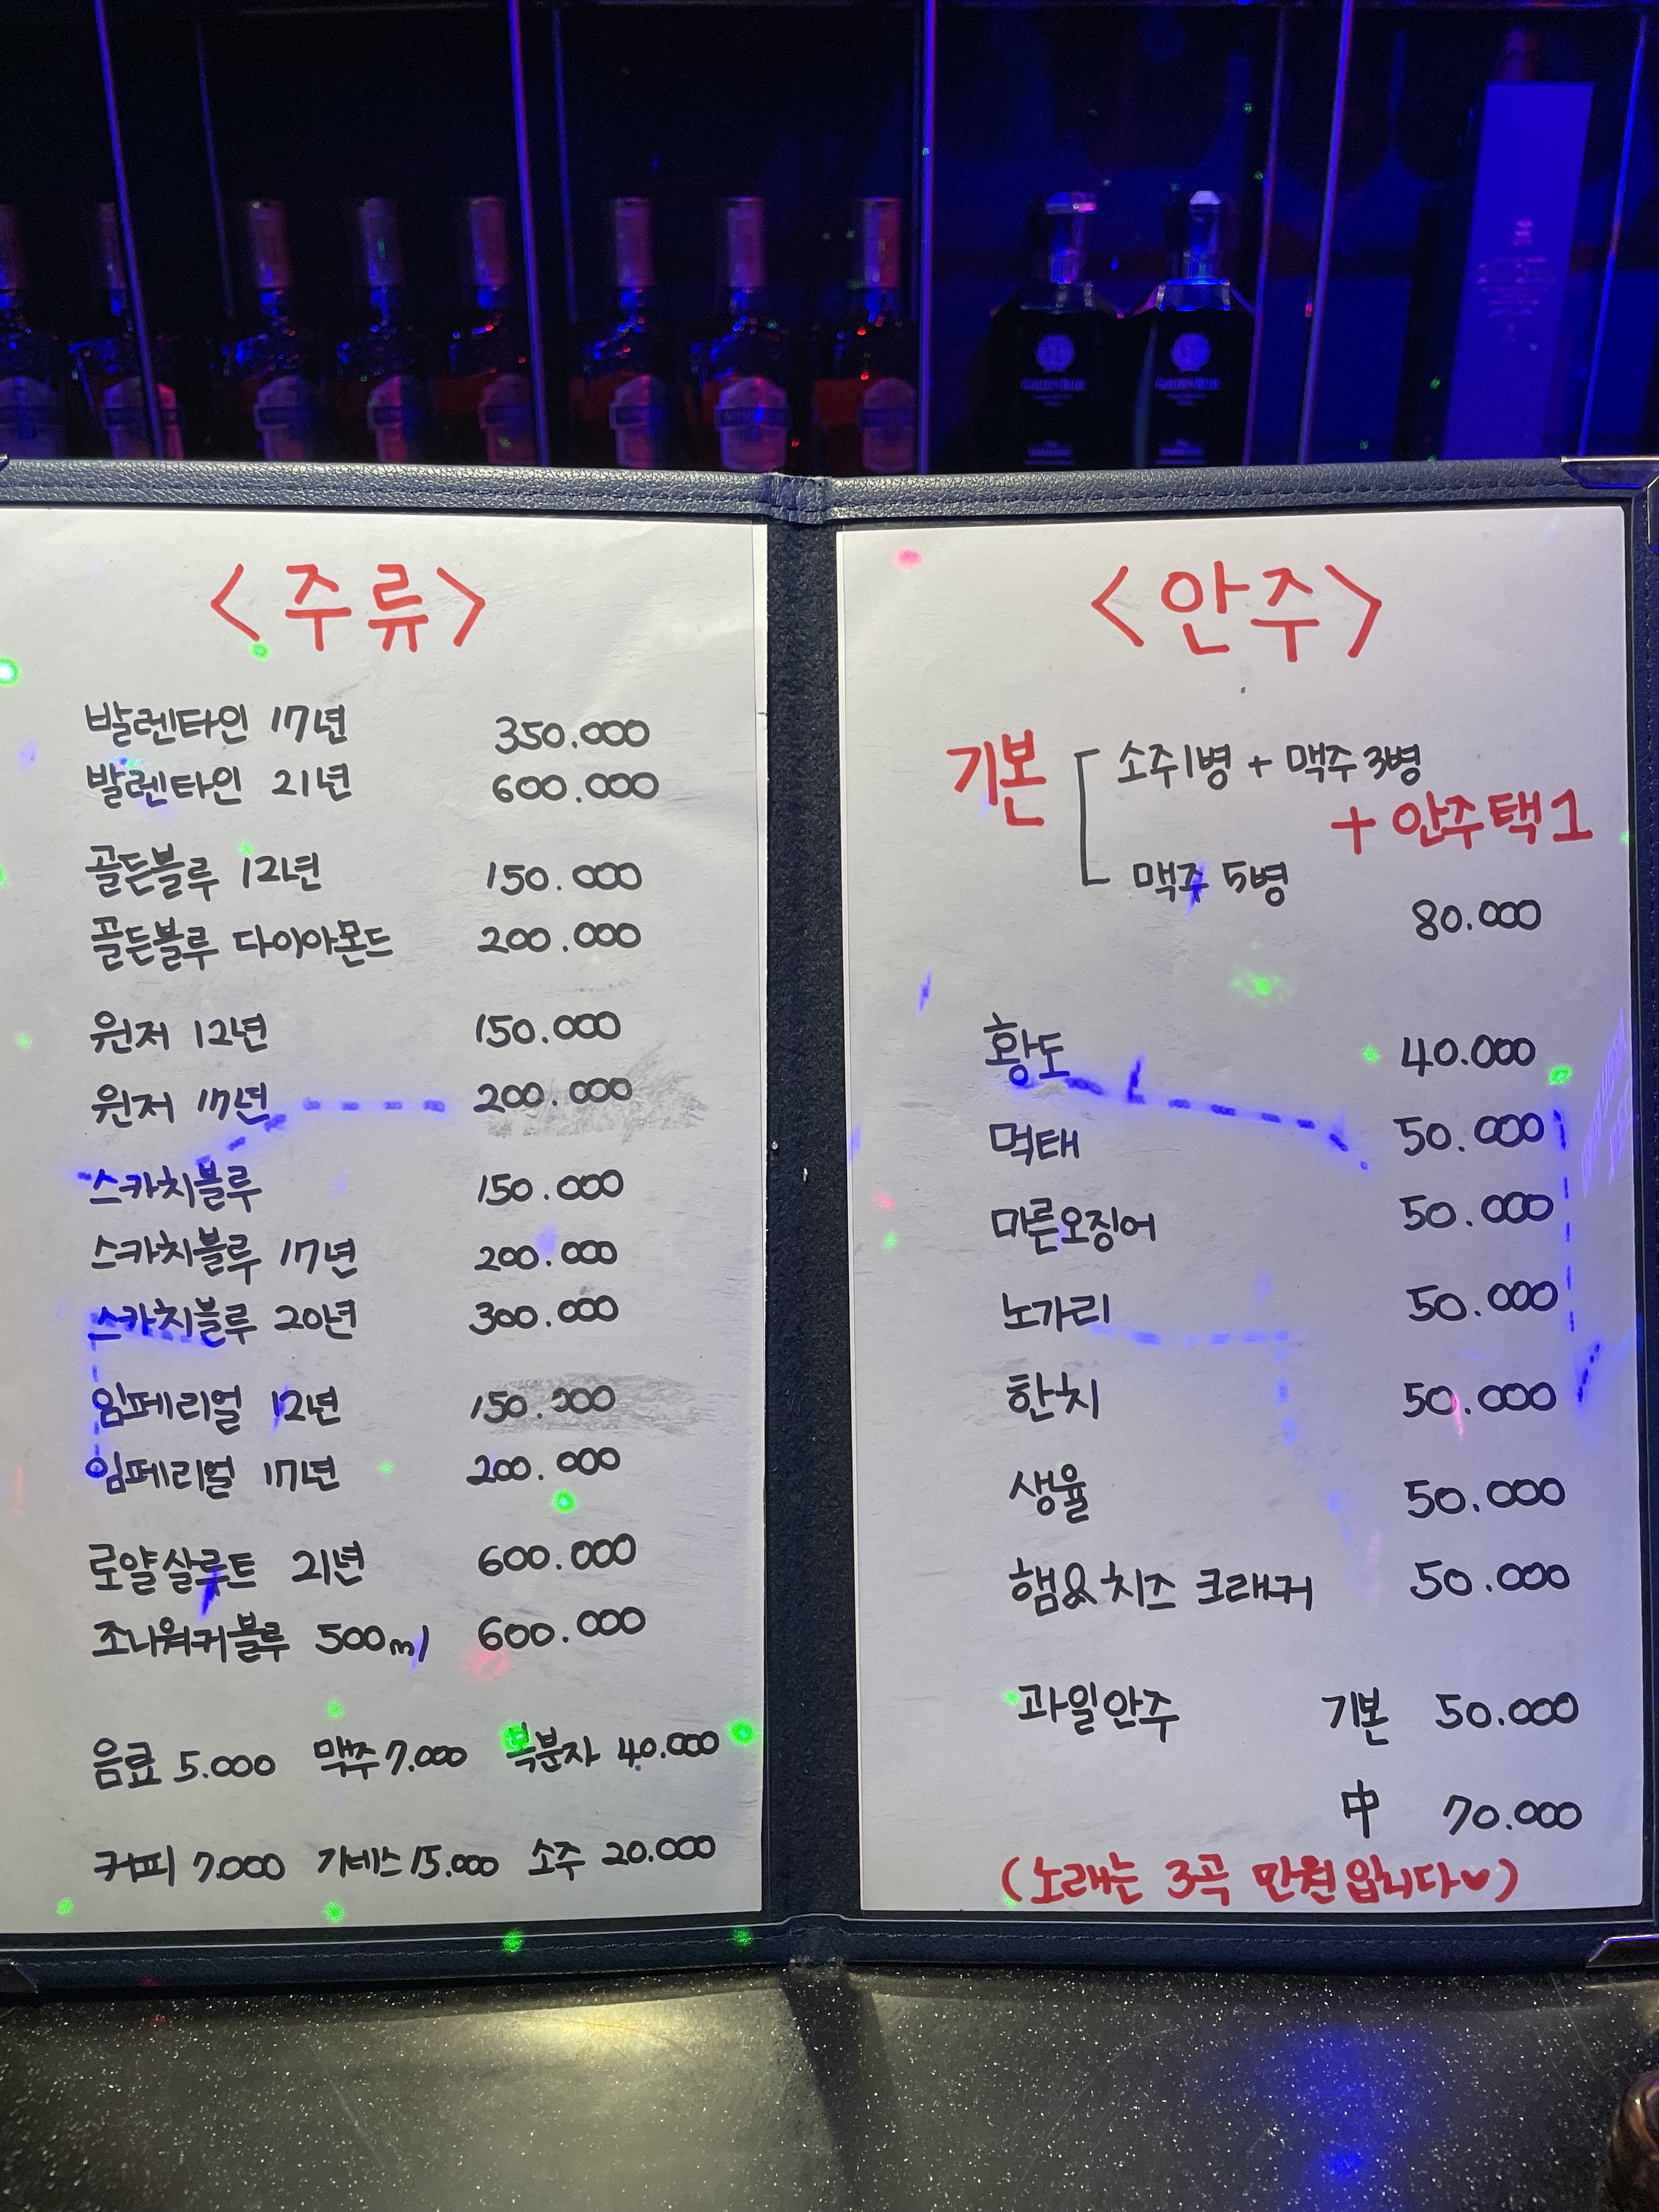 <주류>
발렌타인 17년 350.000
발렌타인 21년 600.000
골든블루 12년 150.000
골든블루 다이아몬드 200.000
윈저 12년 150.000
윈저 17년 200.000
스카치블루 150.000
스카치블루 17년 200.000
스카치블루 20년 300.000
임페리얼 12년 150.000
임페리얼 17년 200.000
로얄살루트 21년 600.000
조니워커블루 500ml 600.000
음료 5.000 맥주 7.000 복분자 40.000
커피 7.000 기네스 15.000 소주 20.000
<안주>
기본 소주1병 + 맥주 3병
+ 안주택1
맥주 5병
80.000
황도 40.000
먹태 50.000
마른오징어 50.000
노가리 50.000
한치 50.000
생율 50.000
햄&치즈 크래커 50.000
과일안주 기본 50.000
中 70.000
(노래는 3곡 만원입니다♥)
GOLDEN BLUE
GOLDEN BLUE